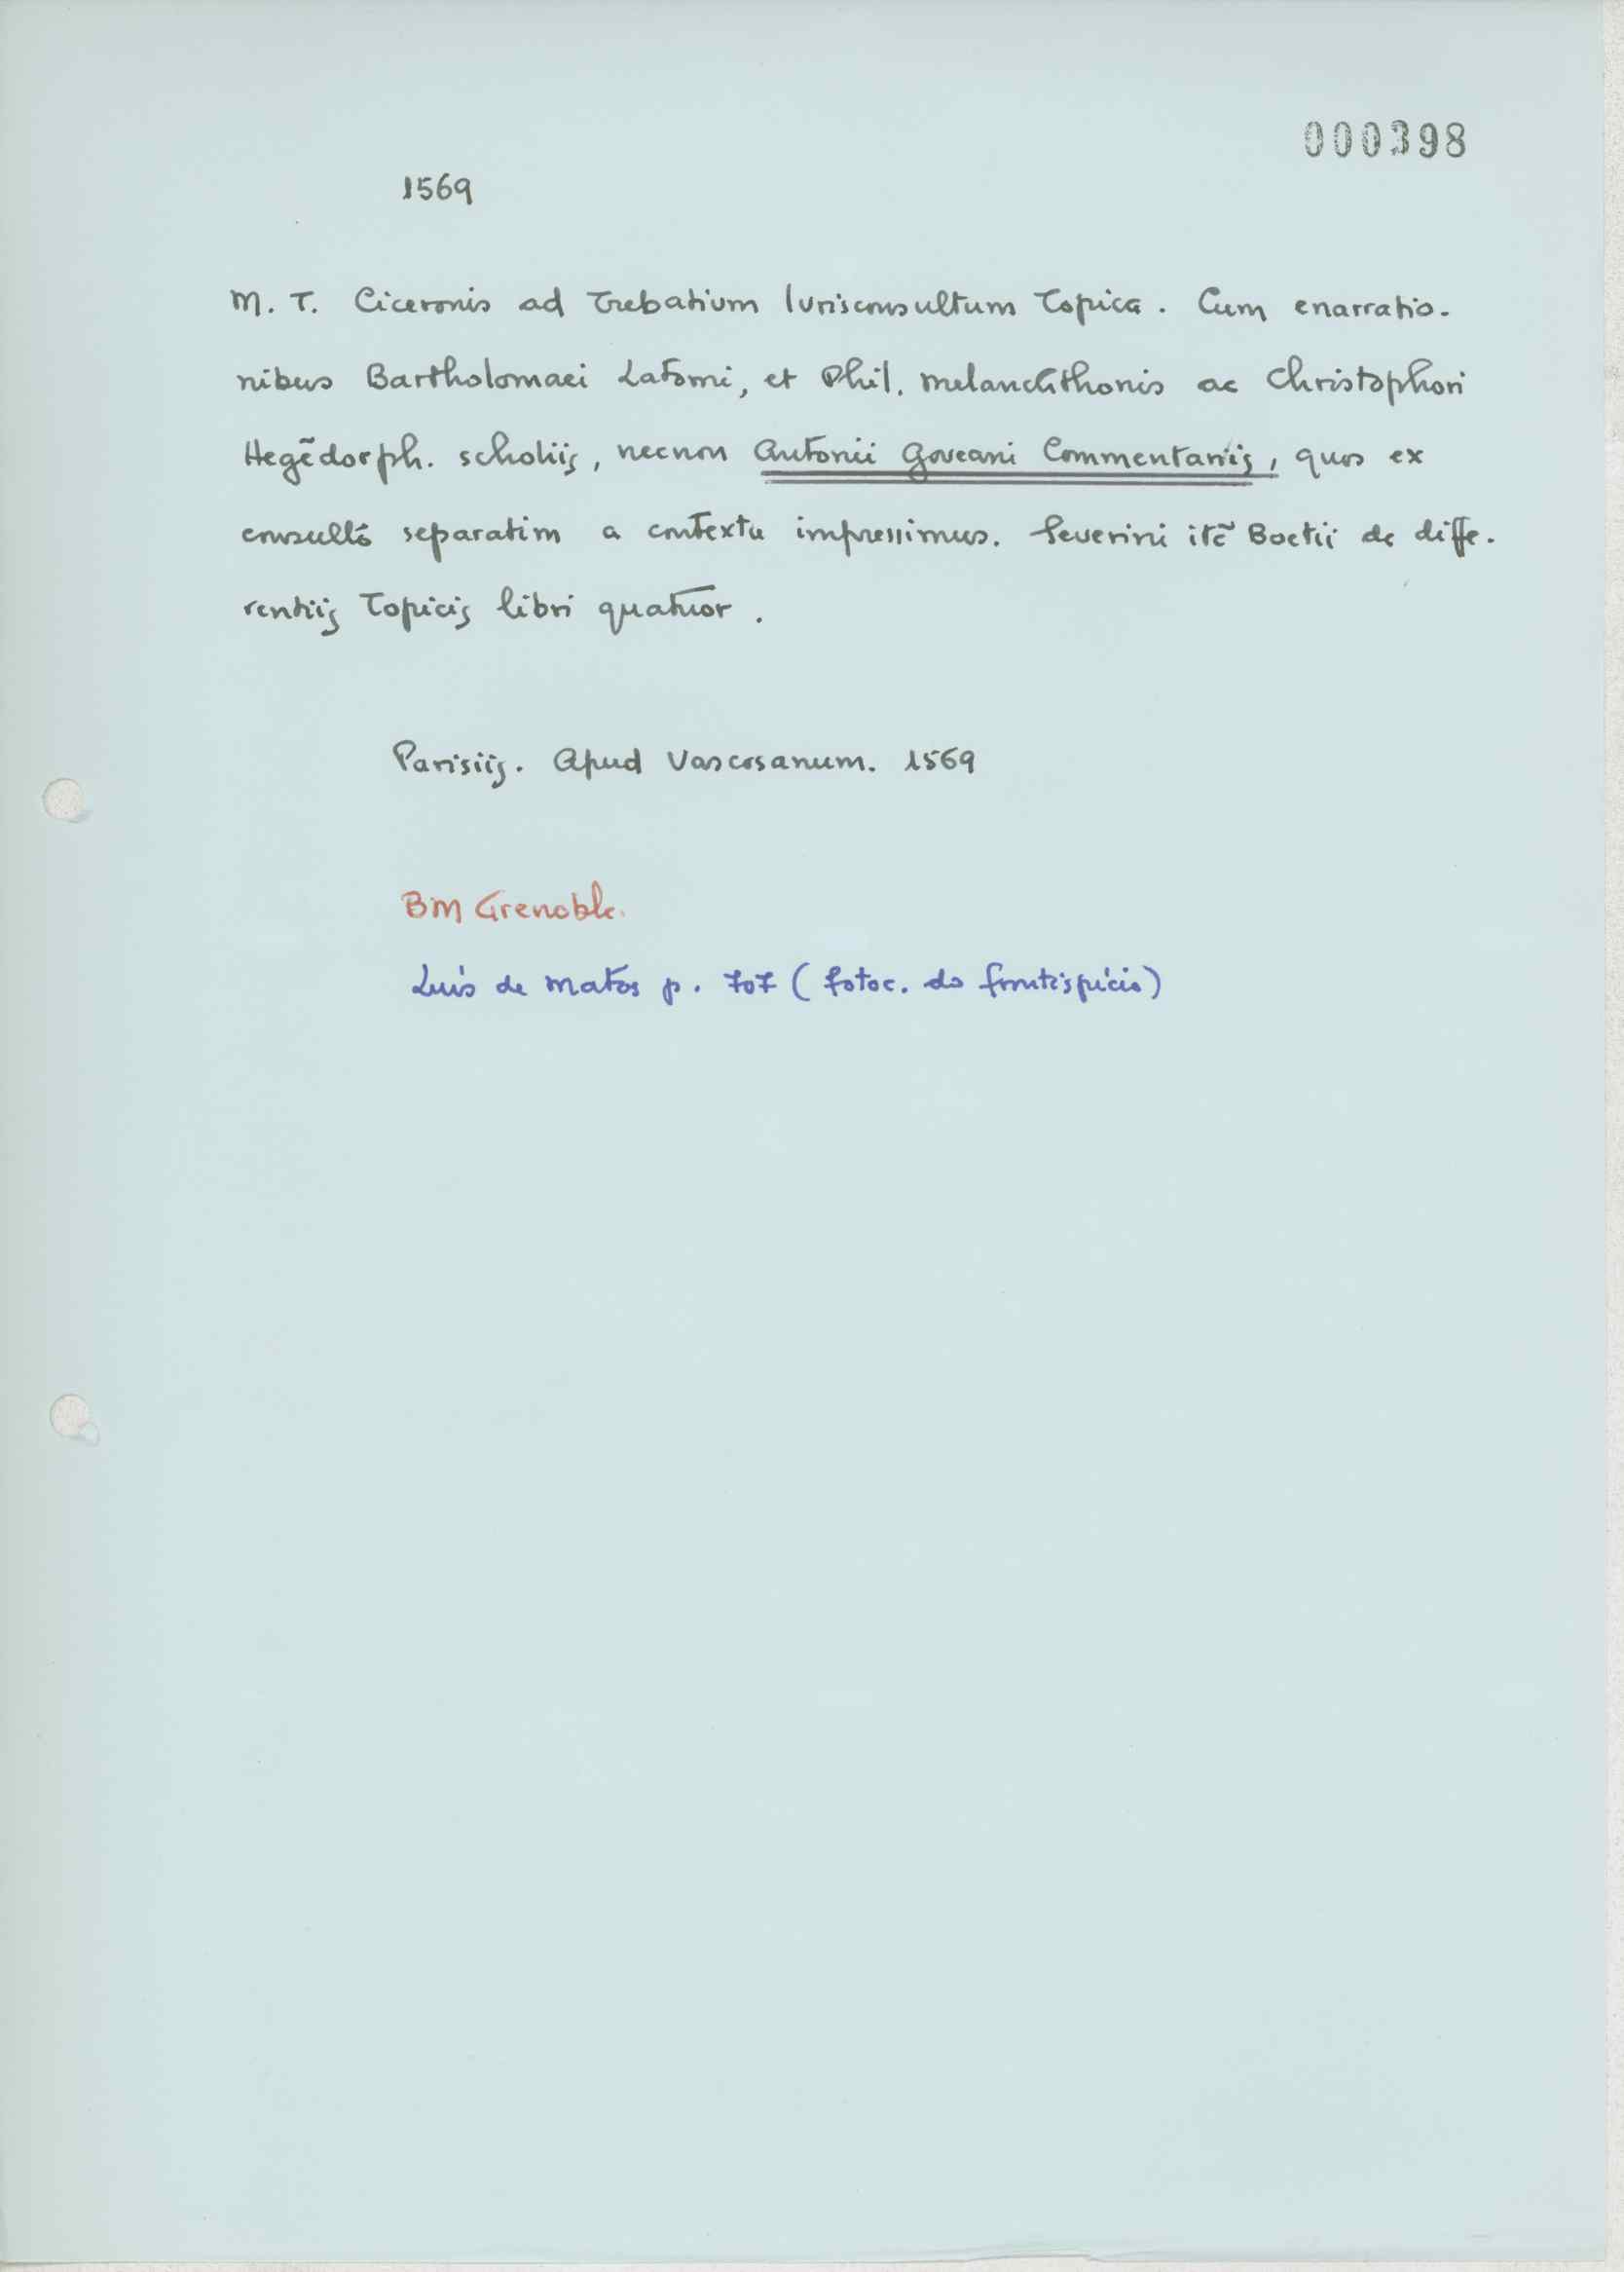 000398
1569
M. T. Ciceronis ad Trebatium Iurisconsultum Topica. Cum enarratio-
nibus Bartholomaei Latomi, et Phil. Melanchthonis ac Christophori
Hegēdorph. scholiis, necnon Antonii Goveani Commentariis, quos ex
consultó separatim a contextu impressimus. Severini itē Boetii de diffe-
rentiis Topicis libri quatuor.
Parisiis. Apud Vascosanum. 1569
BM Grenoble.
Luís de Matos p. 707 (fotoc. do frontispício)